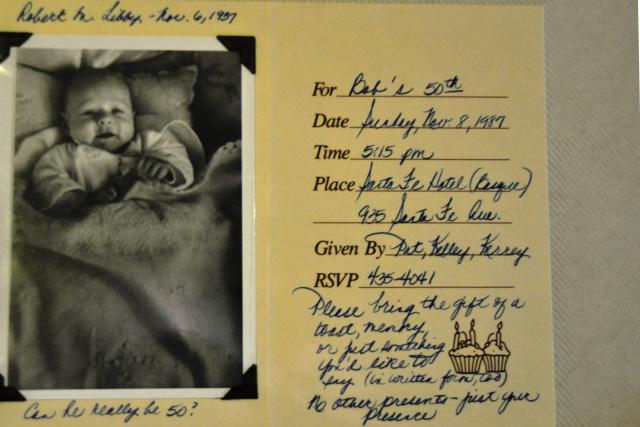 Robert M. Libby - Nov. 6, 1937
Can he really be 50?
For Bob's 50th
Date Sunday, Nov. 8, 1987
Time 5:15 pm
Place Santa Fe Hotel (Basque)
935 Santa Fe Ave.
Given By Pat, Kelley, Kerrey
RSVP 435-4041
Please bring the gift of a
toast, memory,
or just something
you'd like to
say (in written form, too)
No other presents - just your
presence